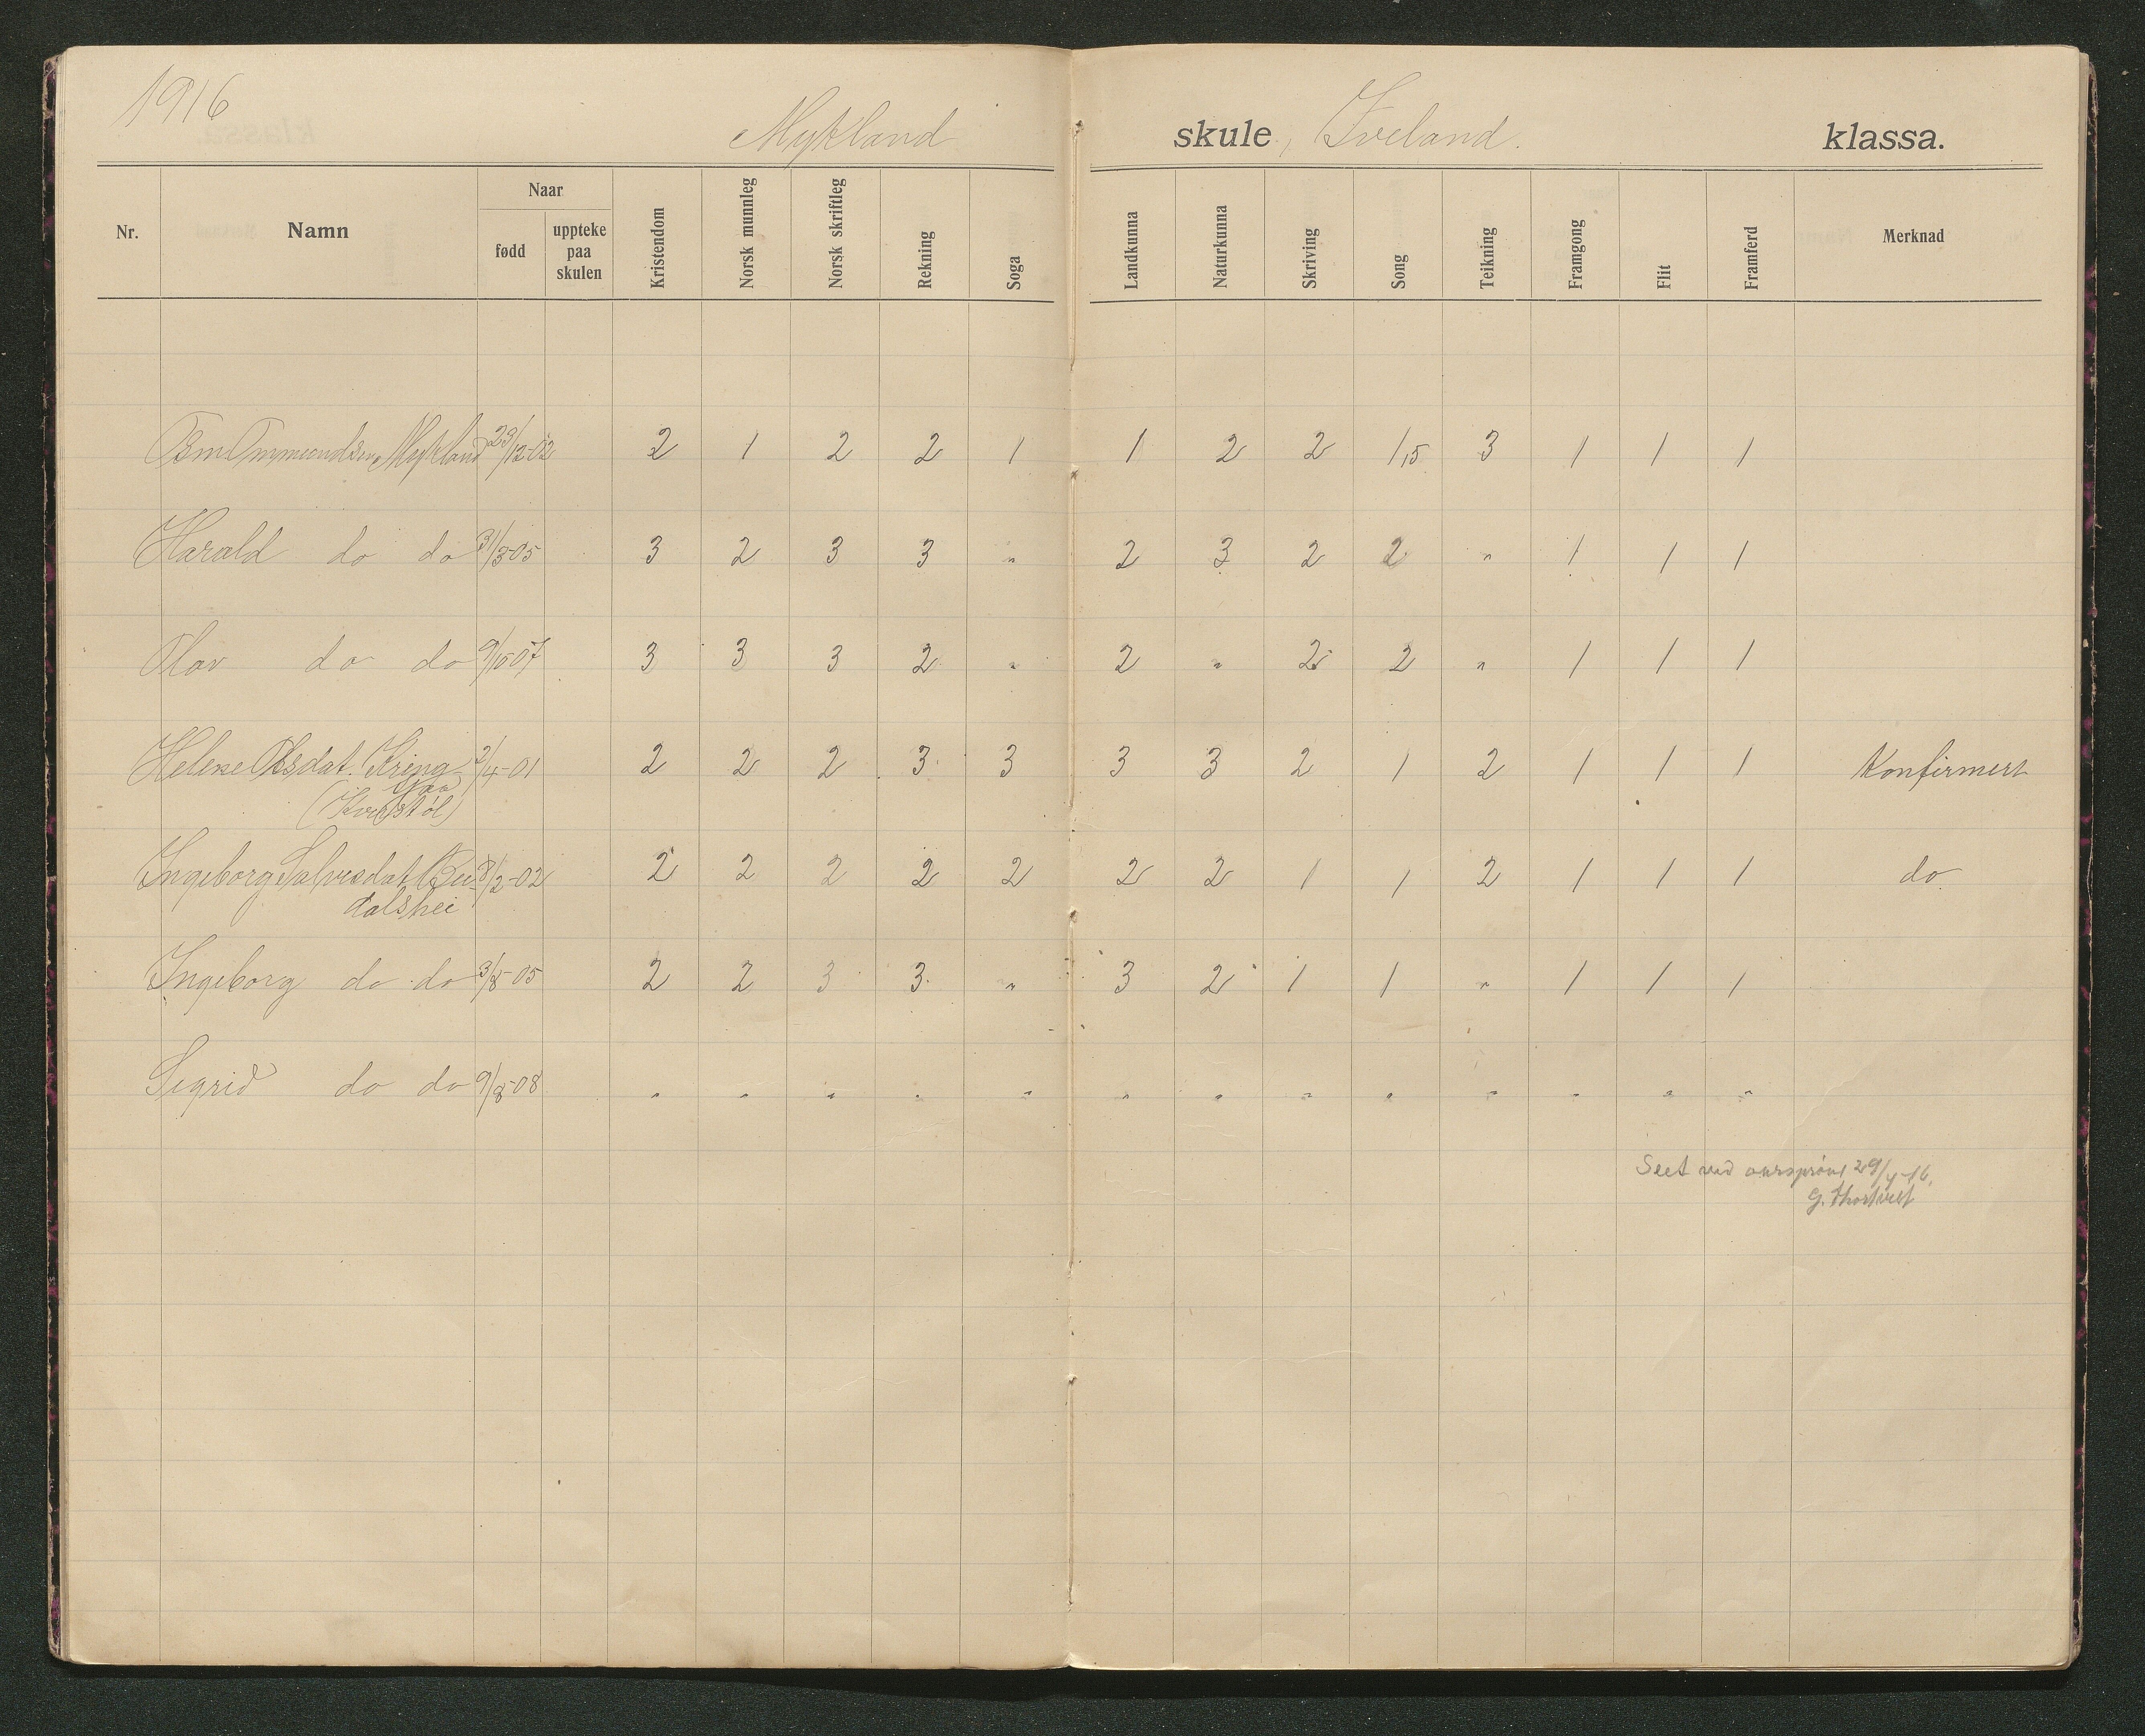 1916
Mykland skule, Iveland. klassa.
Nr. Namn Naar fødd uppteke paa skulen Kristendom Norsk munnleg Norsk skriftleg Rekning Soga Landkunna Naturkunna Skriving Song Teikning Framgong Flit Framferd Merknad
Ommundsen Mykland 23/12-02 2 1 2 2 1 1 2 2 1,5 3 1 1 1
Harald do do 31/3-05 3 2 3 3 " 2 3 2 2 " 1 1 1
Olav do do 9/10-07 3 3 3 2 " 2 " 2 2 " 1 1 1
Helene Olsdat. Kring- 2/4-01 2 2 2 3 3 3 3 2 1 2 1 1 1 Konfirmert
Ingeborg Salvesdat. Bu- 8/2-02 2 2 2 2 2 2 2 1 1 2 1 1 1 do
dalshei
Ingeborg do do 3/8-05 2 2 3 3 " 3 2 1 1 " 1 1 1
Sigrid do do 9/8-08 " " " " " " " " " " " " "
Seet ved aarsprøve 29/4-16.
G. Thortveit